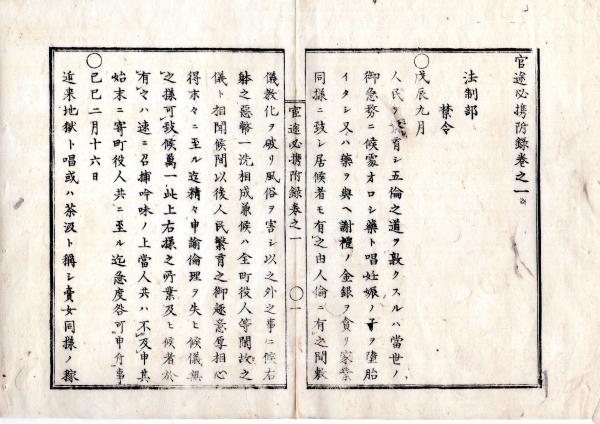 官途必携附録巻之一
法制部
禁令
○戊辰九月
人民ヲ育シ五倫之道ヲ敦クスルハ當世ノ
御急務ニ候處オロシ藥ト唱妊娠ノ子ヲ墮胎
イタシ又ハ藥ヲ與ヘ謝禮ノ金銀ヲ貪リ家業
同様ニ致シ居候者モ有之由人倫ニ有之間敷
官途必携附録巻之一
○一
儀教化ヲ破リ風俗ヲ害シ以之外之事ニ候右
躰之惡幣一洗相成兼候ハ全町役人等閑故之
儀ト相聞候間以後人民繁育之御趣意厚相心
得末々ニ至ル迄精々申諭倫理ヲ失ヒ候儀無
之様可致候萬一此上右様之所業及ヒ候者於
有之ハ速ニ召捕吟味ノ上當人共ハ不及申其
始末ニ寄町役人共ニ至ル迄急度咎可申付事
○己巳二月十六日
近来地獄ト唱或ハ茶汲ト稱シ賣女同様ノ稼